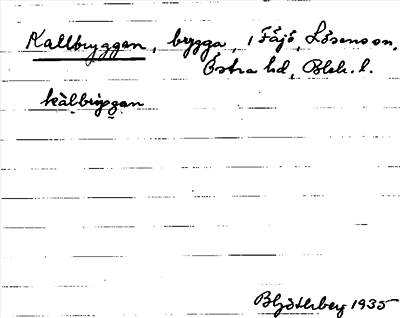 Kallbryggan, brygga, i Fäjö, Lösens sn,
Östra hd, Blek. l.
kàlbrỳgan
B Hjöthberg 1935